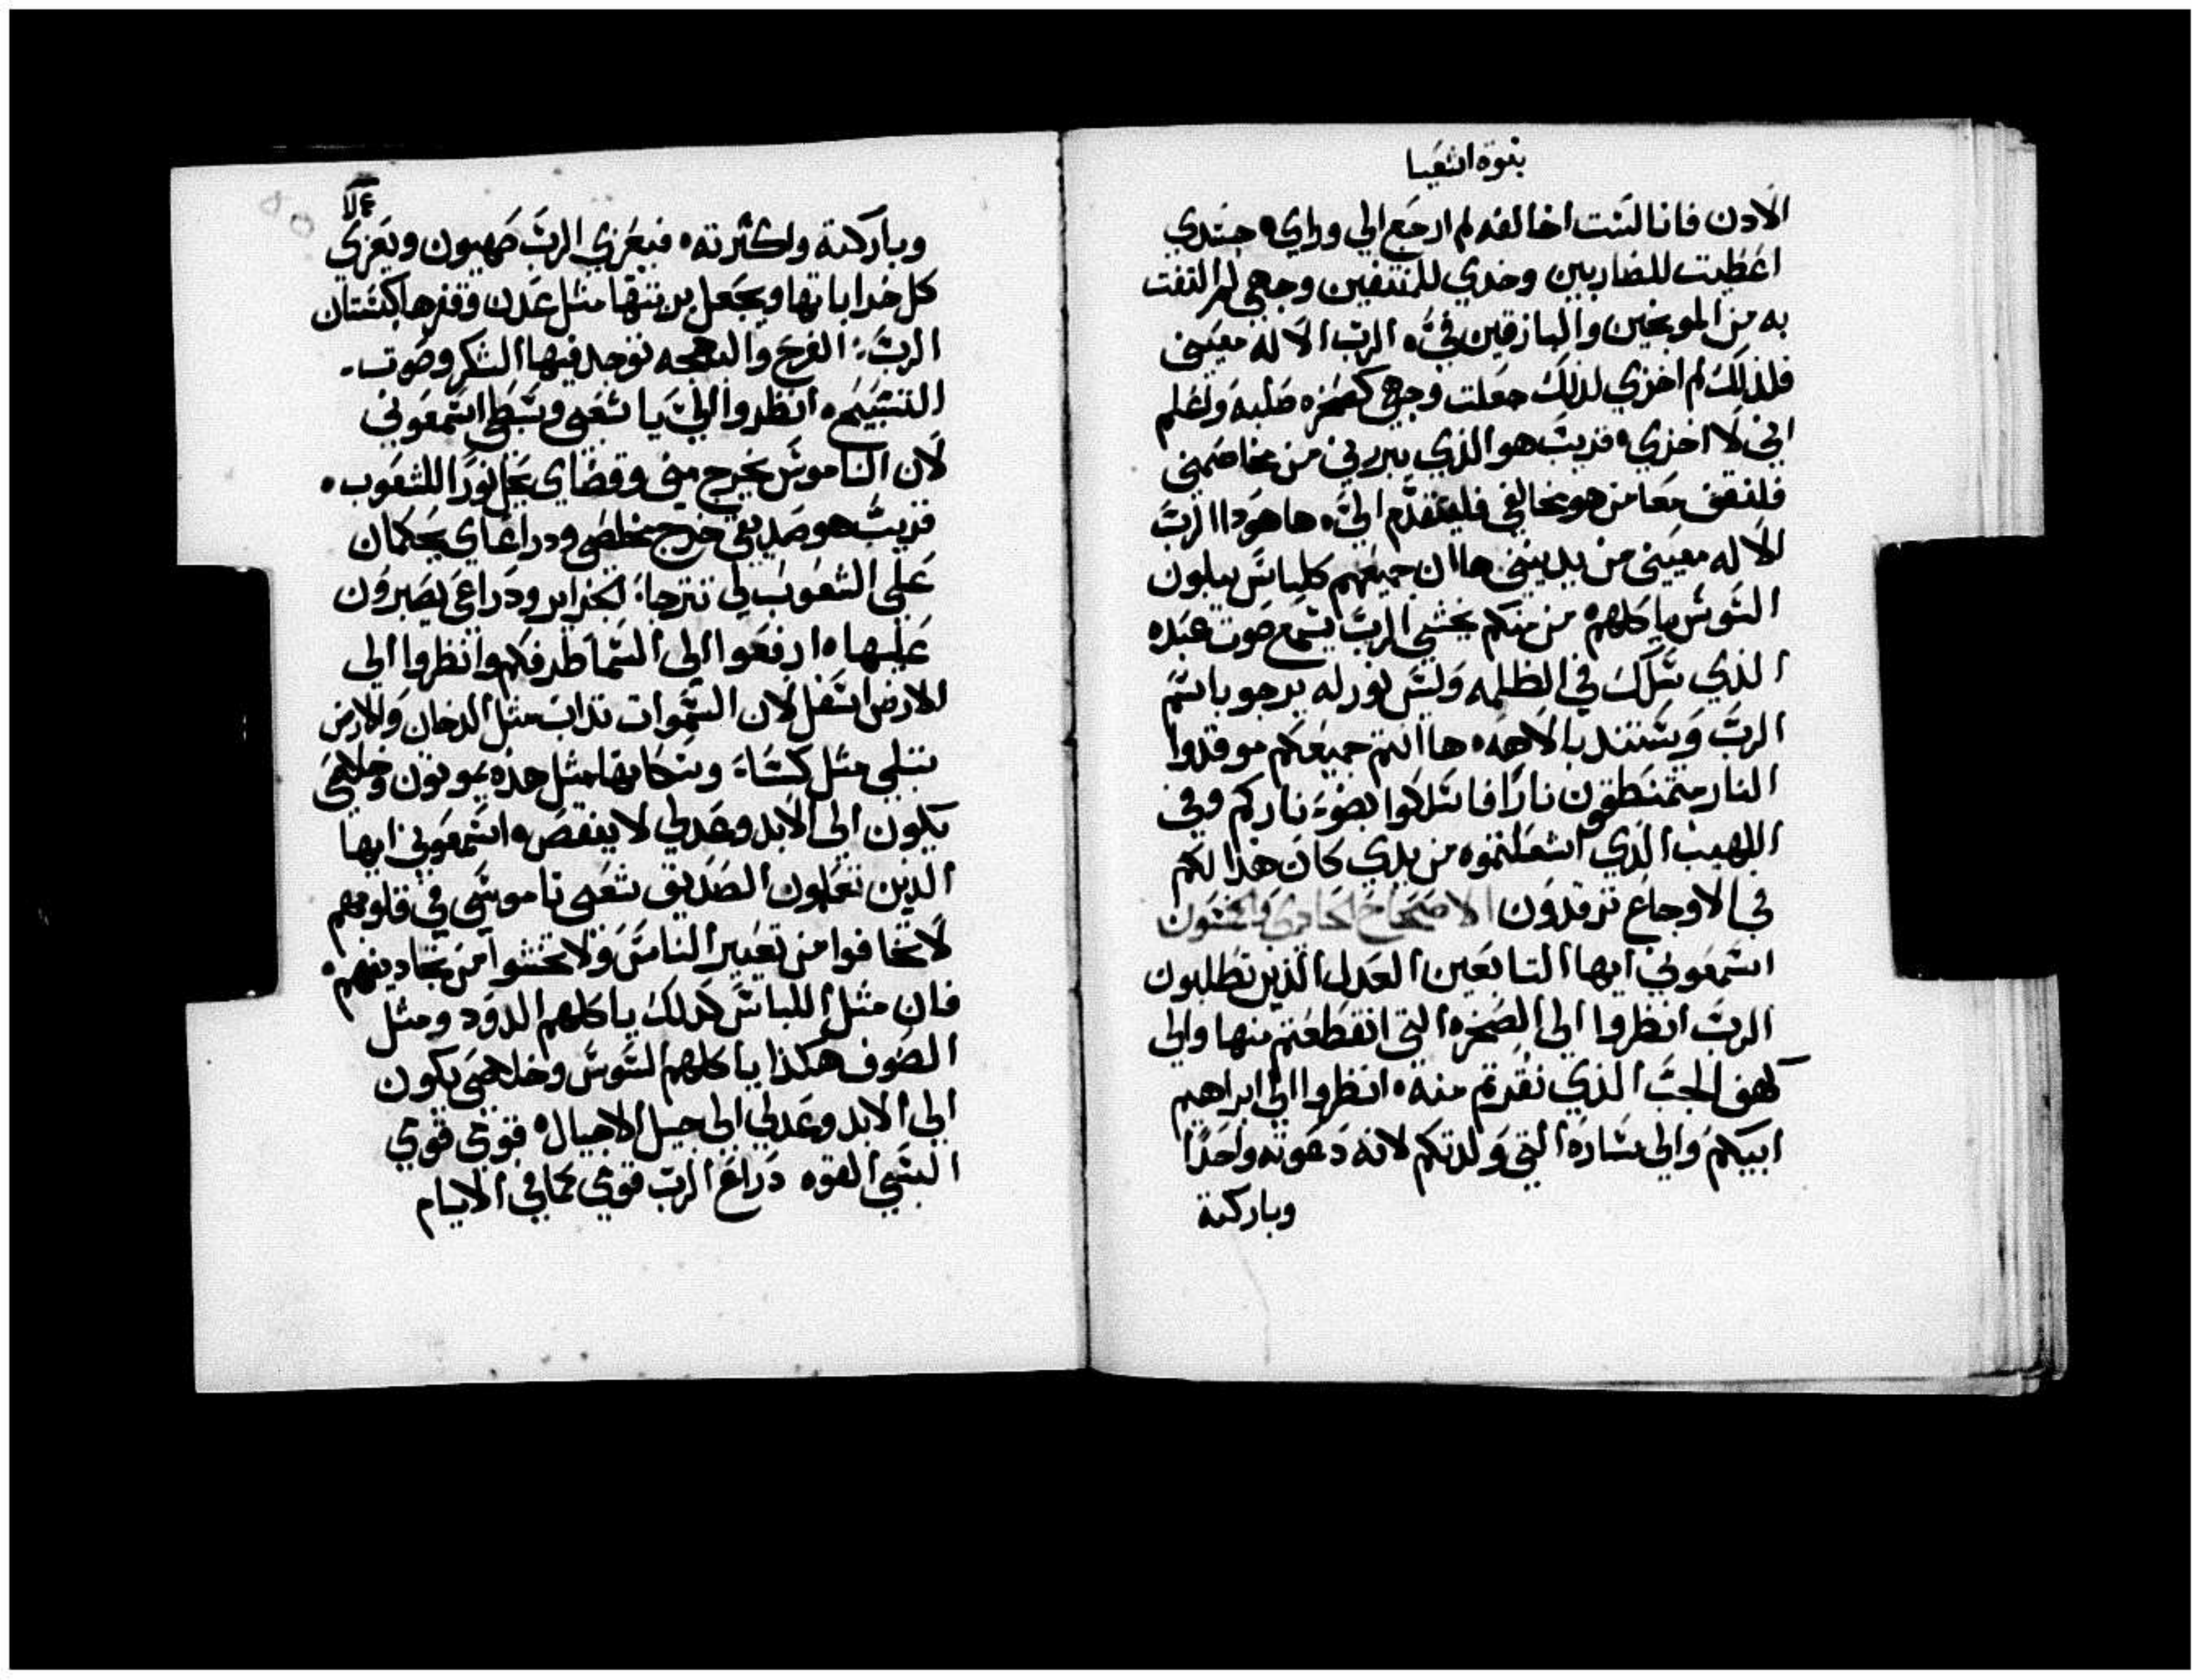 بنوة اشعيا
الادن فانا لست اخالفه لم ارجع الي وراي جسدي
اعطيت للضاربين وخدي للمنتفين وجهي لم التفت
به من الموبخين والبازقين فيَّ الرب الاله معيني
فلذلك لم اخزي لذلك جعلت وجهي كصخره صلبه ولعلم
اني لا اخزي قريب هو الذي يبررني من يخاصمني
فلنقف معا من هو مخالفي فليتقدم اليَّ ها هودا الرب
الاله معيني من يدينني ها ان جميعهم كلباس يبلون
السوس ياكلهم من منكم يخشي الرب يسمع صوت عبده
الذي سلك في الظلمه وليس نور له يرجو باسم
الرب ويستند بالاهه ها انتم جميعكم موقدوا
النار متمنطقون نارا فاسلكوا بضوء ناركم وفي
اللهيب الذي اشعلتموه من يدي كان هذا لكم
في الاوجاع ترقدون الاصحاح الحادي والخمسون
اسمعوني ايها التابعين العدل الذين تطلبون
الرب انظروا الي الصخره التي انقطعتم منها والي
كهف الجب الذي نقرتم منه انظروا الي ابراهيم
ابيكم والي ساره التي ولدتكم لانه دعوته واحدا
وباركته
وباركته واكثرته فيعزي الرب صهيون ويعزي
كل خراباتها ويجعل بريتها مثل عدن وقفرها كبستان
الرب الفرح والبهجه توجد فيها الشكر وصوت
التسبيح انظروا اليَّ يا شعبي وسبطي اسمعوني
لان الناموس يخرج مني وقضاي نورا للشعوب
قريب هو صديقي خرج مخلصي ودراعاي يحكمان
علي الشعوب لي تترجا الجزاير ودراعي يصبرون
عليها ارفعوا الي السما طرفكم وانظروا الي
الارض اسفل لان السموات تداب مثل الدخان والارض
تبلي مثل كساء وسكانها مثل هذه يموتون وخلاصي
يكون الي الابد وعدلي لا ينقص اسمعوني ايها
الذين تعلمون الصديق شعبي ناموسي في قلوبهم
لا تخافوا من تعيير الناس ولا تخشوا من تجاديفهم
فان مثل اللباس كدلك ياكلهم الدود ومثل
الصوف هكذا ياكلهم السوس وخلاصي يكون
الي الابد وعدلي الي جيل الاجيال قومي قومي
البسي القوه دراع الرب قومي كما في الايام